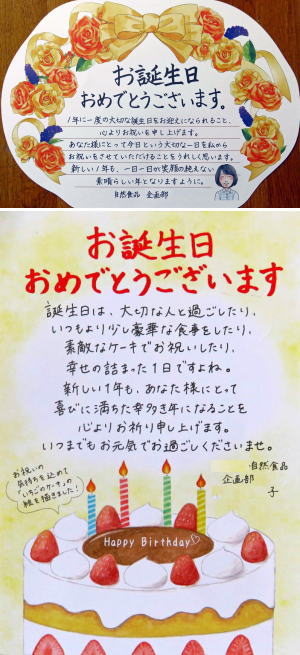 お誕生日
おめでとうございます。
1年に一度の大切な誕生日をお迎えになられること、
心よりお祝いを申し上げます。
あなた様にとって今日という大切な一日を私から
お祝いをさせていただけることをうれしく思います。
新しい1年も、一日一日が笑顔の絶えない
素晴らしい年となりますように。
自然食品 企画部
お誕生日
おめでとうございます
誕生日は、大切な人と過ごしたり、
いつもより少し豪華な食事をしたり、
素敵なケーキでお祝いしたり、
幸せの詰まった1日ですよね。
新しい1年も、あなた様にとって
喜びに満ちた幸多き年になることを
心よりお祈り申し上げます。
いつまでもお元気でお過ごしくださいませ。
自然食品
企画部
子
お祝いの
気持ちを込めて
「いちごのケーキ」の
絵を描きました!
Happy Birthday♡